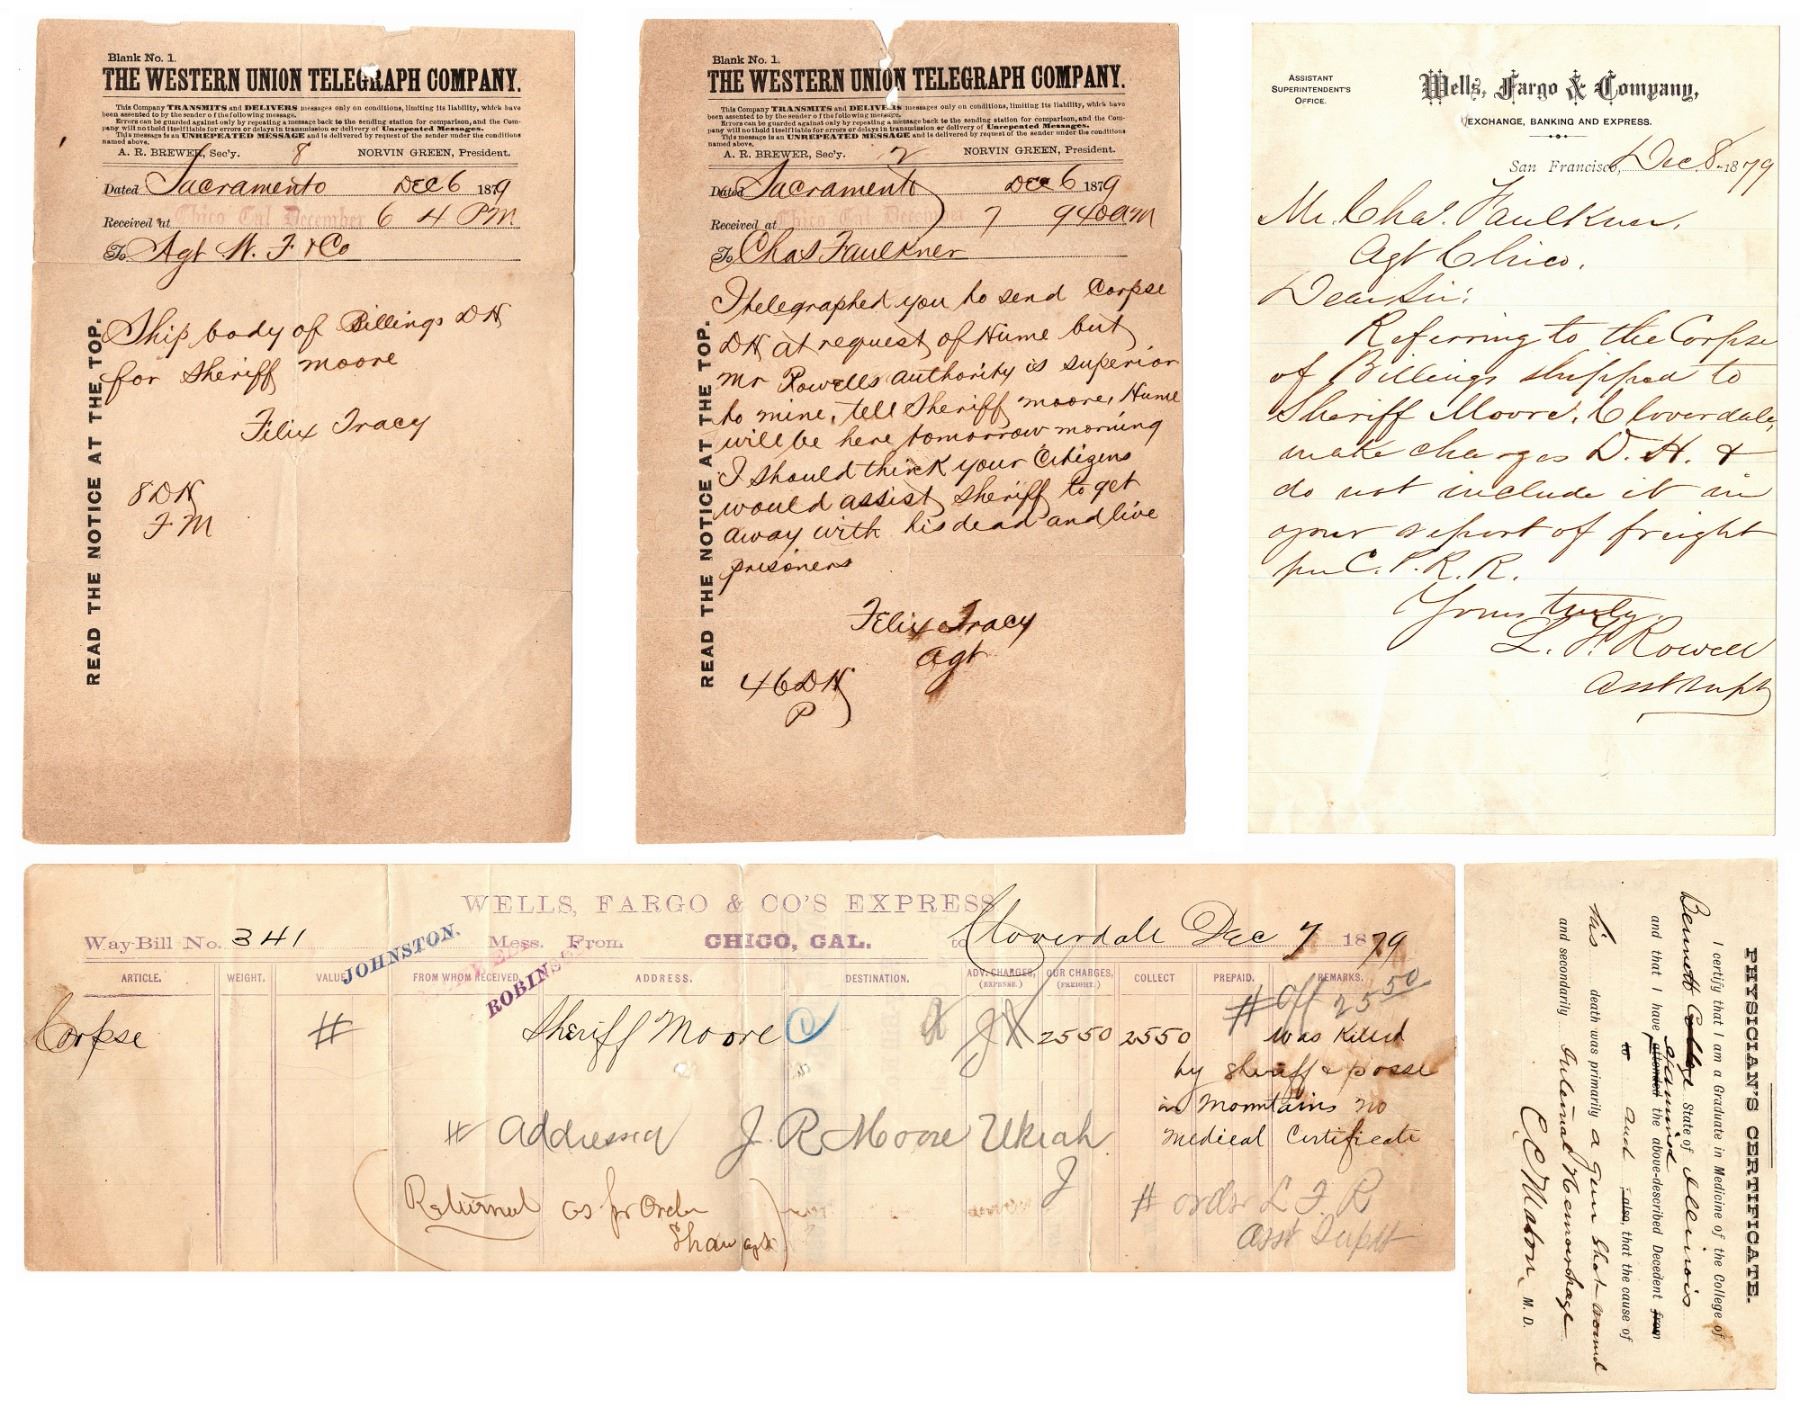 Blank No. 1.
THE WESTERN UNION TELEGRAPH COMPANY.
This Company TRANSMITS and DELIVERS messages only on conditions, limiting its liability, which have
been assented to by the sender of the following message.
Errors can be guarded against only by repeating a message back to the sending station for comparison, and the Com-
pany will not hold itself liable for errors or delays in transmission or delivery of Unrepeated Messages.
This message is an UNREPEATED MESSAGE and is delivered by request of the sender under the conditions
named above.
A. R. BREWER, Sec'y. 8 NORVIN GREEN, President.
Dated Sacramento DEC 6 1879
Received at Chico Cal December 6 4 PM
To Agt W. F & Co
READ THE NOTICE AT THE TOP.
Ship body of Billings DH
for Sheriff moore
Felix Tracy
8 DH
FM
Blank No. 1.
THE WESTERN UNION TELEGRAPH COMPANY.
This Company TRANSMITS and DELIVERS messages only on conditions, limiting its liability, which have
been assented to by the sender of the following message.
Errors can be guarded against only by repeating a message back to the sending station for comparison, and the Com-
pany will not hold itself liable for errors or delays in transmission or delivery of Unrepeated Messages.
This message is an UNREPEATED MESSAGE and is delivered by request of the sender under the conditions
named above.
A. R. BREWER, Sec'y. 2 NORVIN GREEN, President.
Dated Sacramento DEC 6 1879
Received at Chico Cal December 7 940am
To Chas Faulkner
READ THE NOTICE AT THE TOP.
I telegraphed you to send Corpse
DH at request of Hume but
mr Rowells authority is superior
to mine, tell Sheriff moore, Hume
will be here tomorrow morning
I should think your Citizens
would assist sheriff to get
away with his dead and live
prisoners
Felix Tracy
Agt
46 DH
P
ASSISTANT
SUPERINTENDENT'S
OFFICE.
Wells, Fargo & Company,
EXCHANGE, BANKING AND EXPRESS.
San Francisco, Dec 8 1879
Mr. Chas. Faulkner,
Agt Chico.
Dear Sir:
Referring to the Corpse
of Billings shipped to
Sheriff Moore, Cloverdale,
make charges D. H. &
do not include it in
your report of freight
per C. P. R. R.
Yours truly,
L. F. Rowell
Asst Supt
WELLS, FARGO & CO'S EXPRESS
Way-Bill No. 341 JOHNSTON. Mess. From CHICO, CAL. to Cloverdale Dec 7 1879
ROBINSON
ARTICLE. WEIGHT. VALUE. FROM WHOM RECEIVED. ADDRESS. DESTINATION. ADV. CHARGES, (EXPENSE.) OUR CHARGES, (FREIGHT.) COLLECT PREPAID. REMARKS.
# Off 25 50
Corpse # Sheriff Moore 25 50 25 50 was Killed
by sheriff & posse
in Mountains no
Medical Certificate
# Addressed J R Moore Ukiah
Returned as per Order
Shaw agt
# order L F R
Asst Supt
PHYSICIAN'S CERTIFICATE.
I certify that I am a Graduate in Medicine of the College of
Bennett College State of Illinois
and that I have attended examined the above-described Decedent from
to and also, that the cause of
his death was primarily a Gun Shot wound
and secondarily Internal Hemorrhage
C C Mason, M. D.